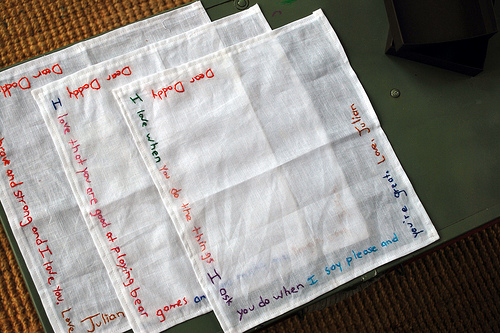 Dear Daddy
brave and strong and I love you Love
Julian
Dear Daddy
I love that you are good at playing bear
games an
Dear Daddy
I love when you do the things
I ask you do when I say please and
you're great. Love, Julian